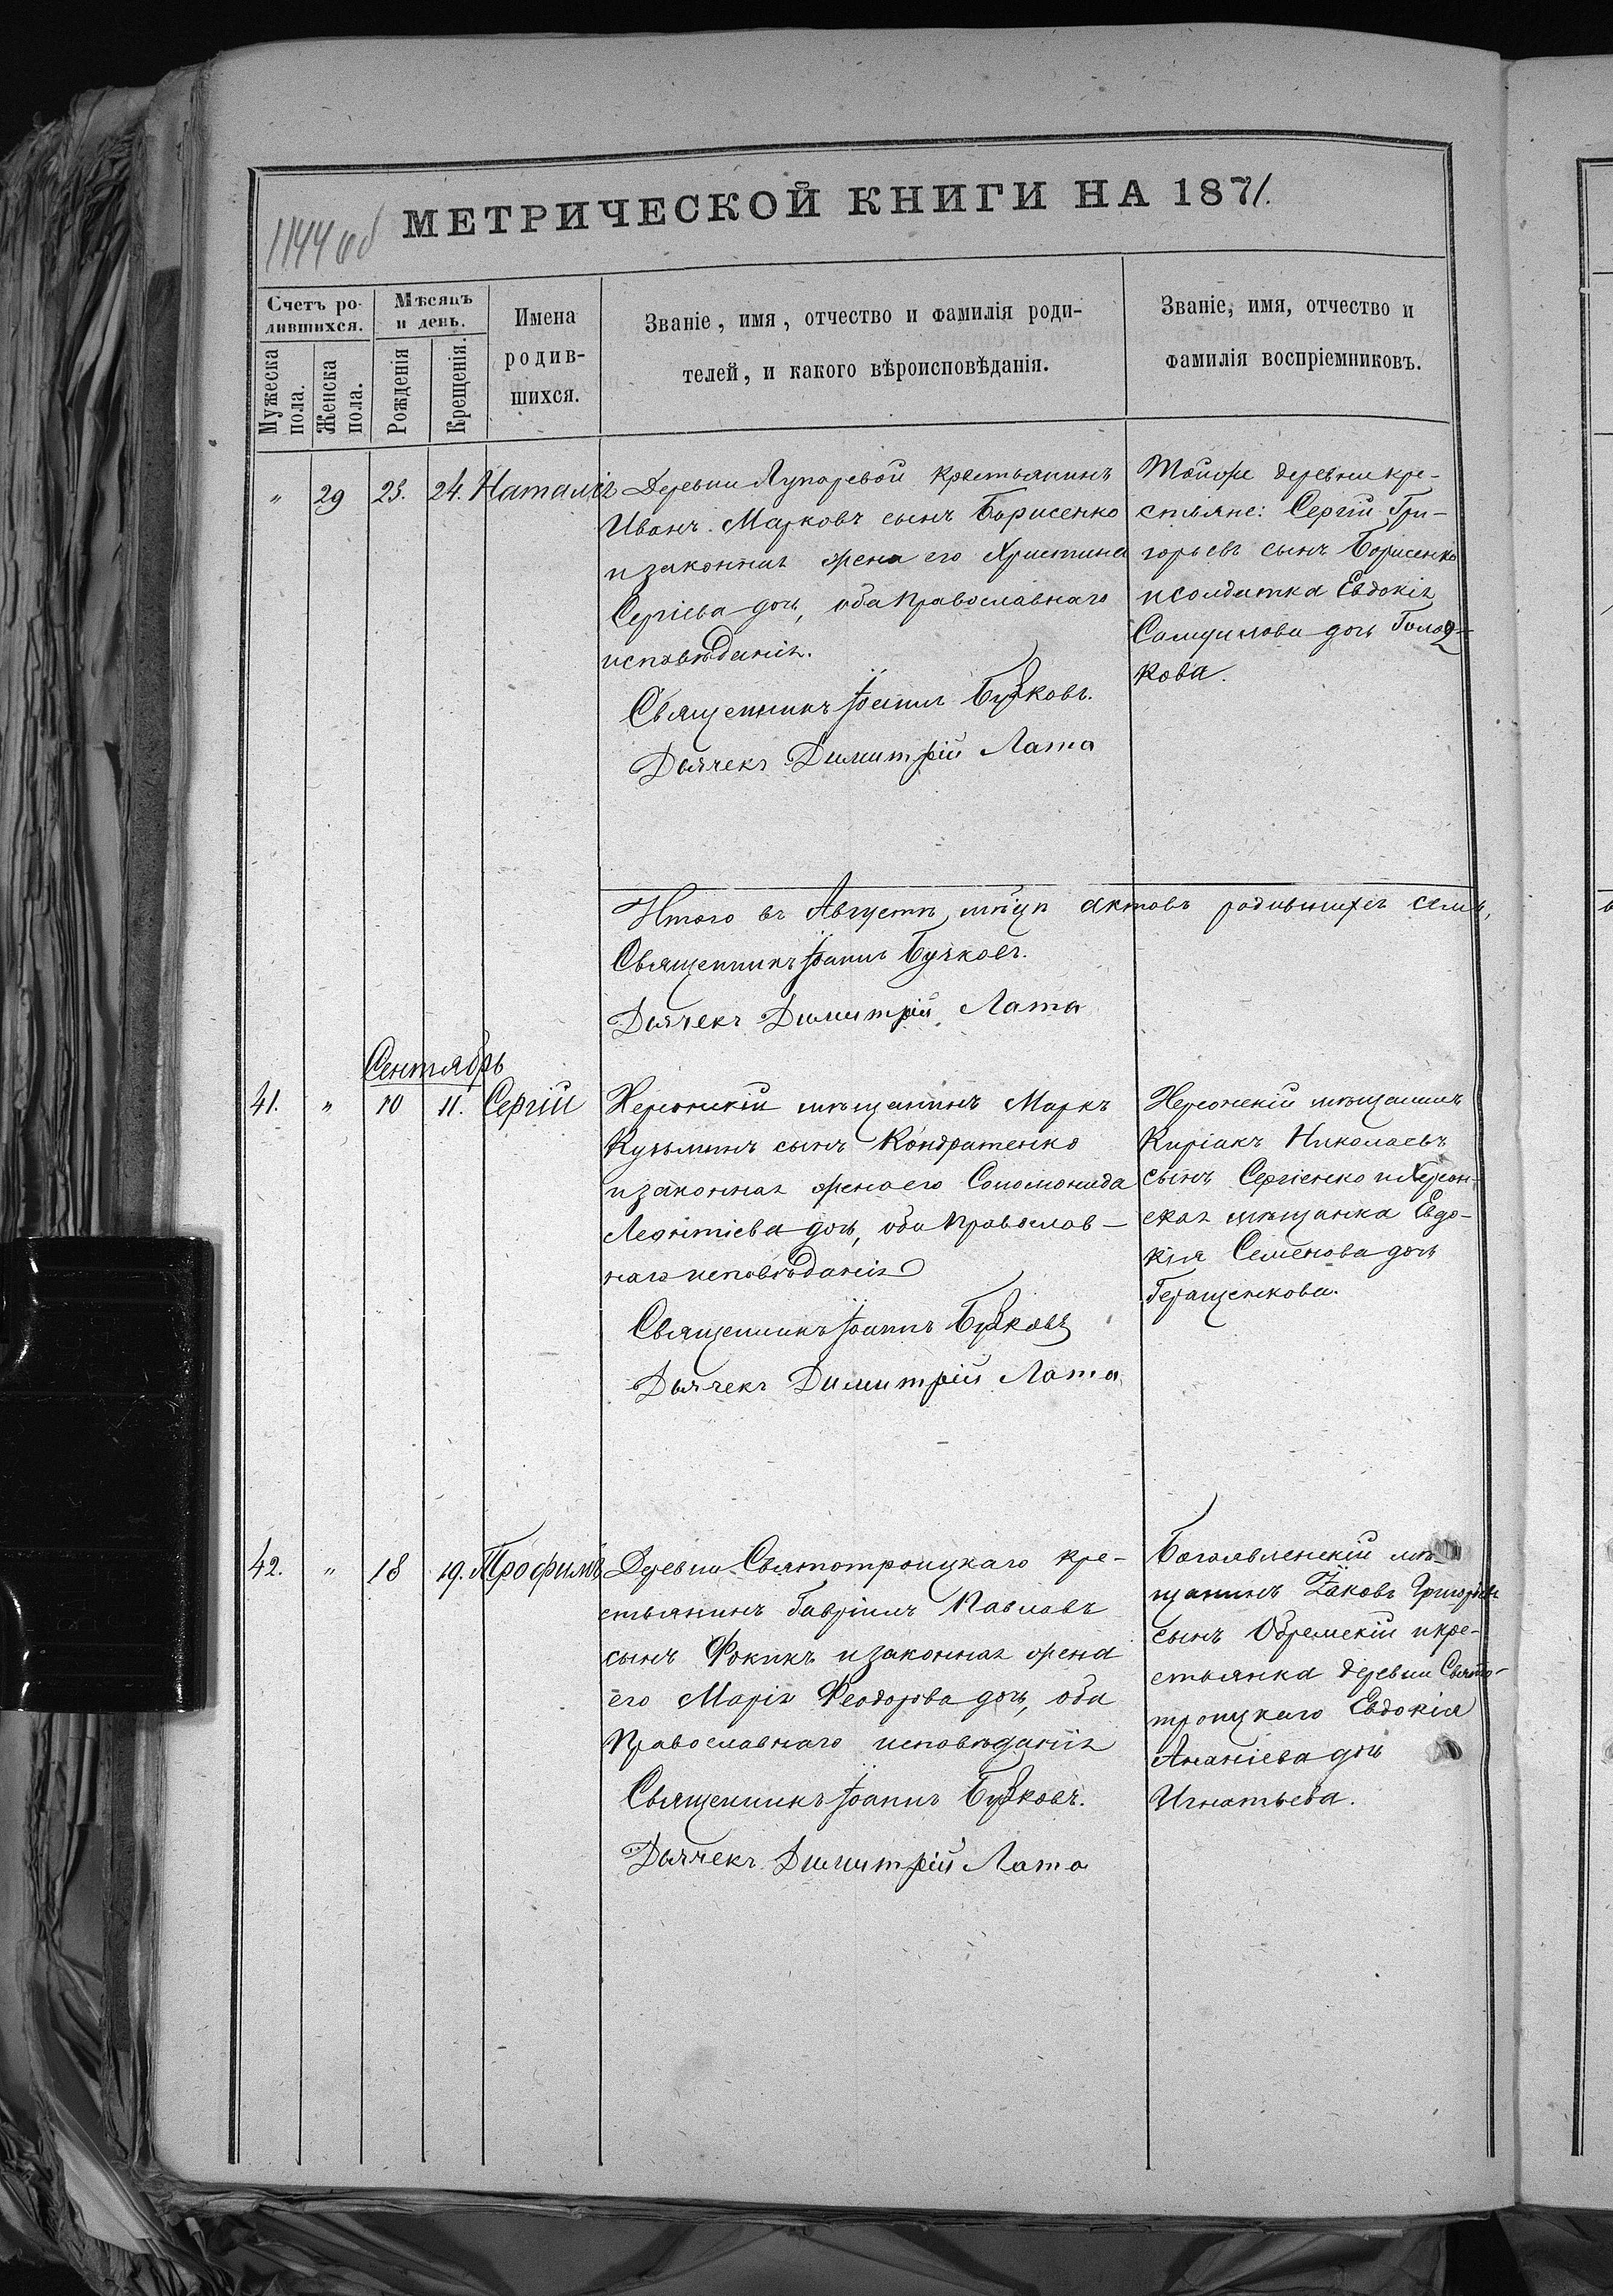 1144 об
МЕТРИЧЕСКОЙ КНИГИ НА 1871.
Счетъ ро-
дившихся.
Мужеска
пола.
Женска
пола.
Мѣсяцъ
и день.
Рожденія
Крещенія.
Имена
родив-
шихся.
Званіе, имя, отчество и фамилія роди-
телей, и какого вѣроисповѣданія.
Званіе, имя, отчество и
фамилія воспріемниковъ.
" 29 23. 24. Наталія
Деревни Лупаревой крестьянинъ
Иванъ Марковъ сынъ Борисенко
и законная жена его Христина
Сергіева дочь, оба православнаго
исповѣданія.
Священникъ Іоаннъ Бучковъ.
Дьячекъ Димитрій Лата
Тойже деревни кре-
стьяне: Сергій Гри-
горьевъ сынъ Борисенко
и солдатка Евдокія
дочь
кова.
Итого въ Августѣ мѣцѣ актовъ родившихся семь,
Священникъ Іоаннъ Бучковъ.
Дьячекъ Димитрій Лата
Сентябрь
41. " 10 11. Сергій
Херсонскій мѣщанинъ Маркъ
Кузьминъ сынъ Кондратенко
и законная жена его Соломонида
Леонтіева дочь, оба православ-
наго исповѣданія
Священникъ Іоаннъ Бучковъ
Дьячекъ Димитрій Лата
Херсонскій мѣщанинъ
Киріакъ Николаевъ
сынъ Сергіенко и Херсон-
ская мѣщанка Евдо-
кія Семенова дочь
Геращенкова.
42. " 18 19. Трофимъ
Деревни Святотроицкаго кре-
стьянинъ Гавріилъ Павловъ
сынъ Фокинъ и законная жена
его Марія Феодорова дочь, оба
Православнаго исповѣданія
Священникъ Іоаннъ Бучковъ.
Дьячекъ Димитрій Лата
Богоявленскій мѣ-
щанинъ Іаковъ Григорьевъ
сынъ Обремскій и кре-
стьянка деревни Свято-
троицкаго Евдокія
Ананіева дочь
Игнатьева.